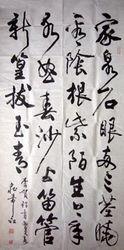 家泉石眼两三茎晓
看陰根紫陌生今年
水曲春沙上笛管
新篁拔玉青